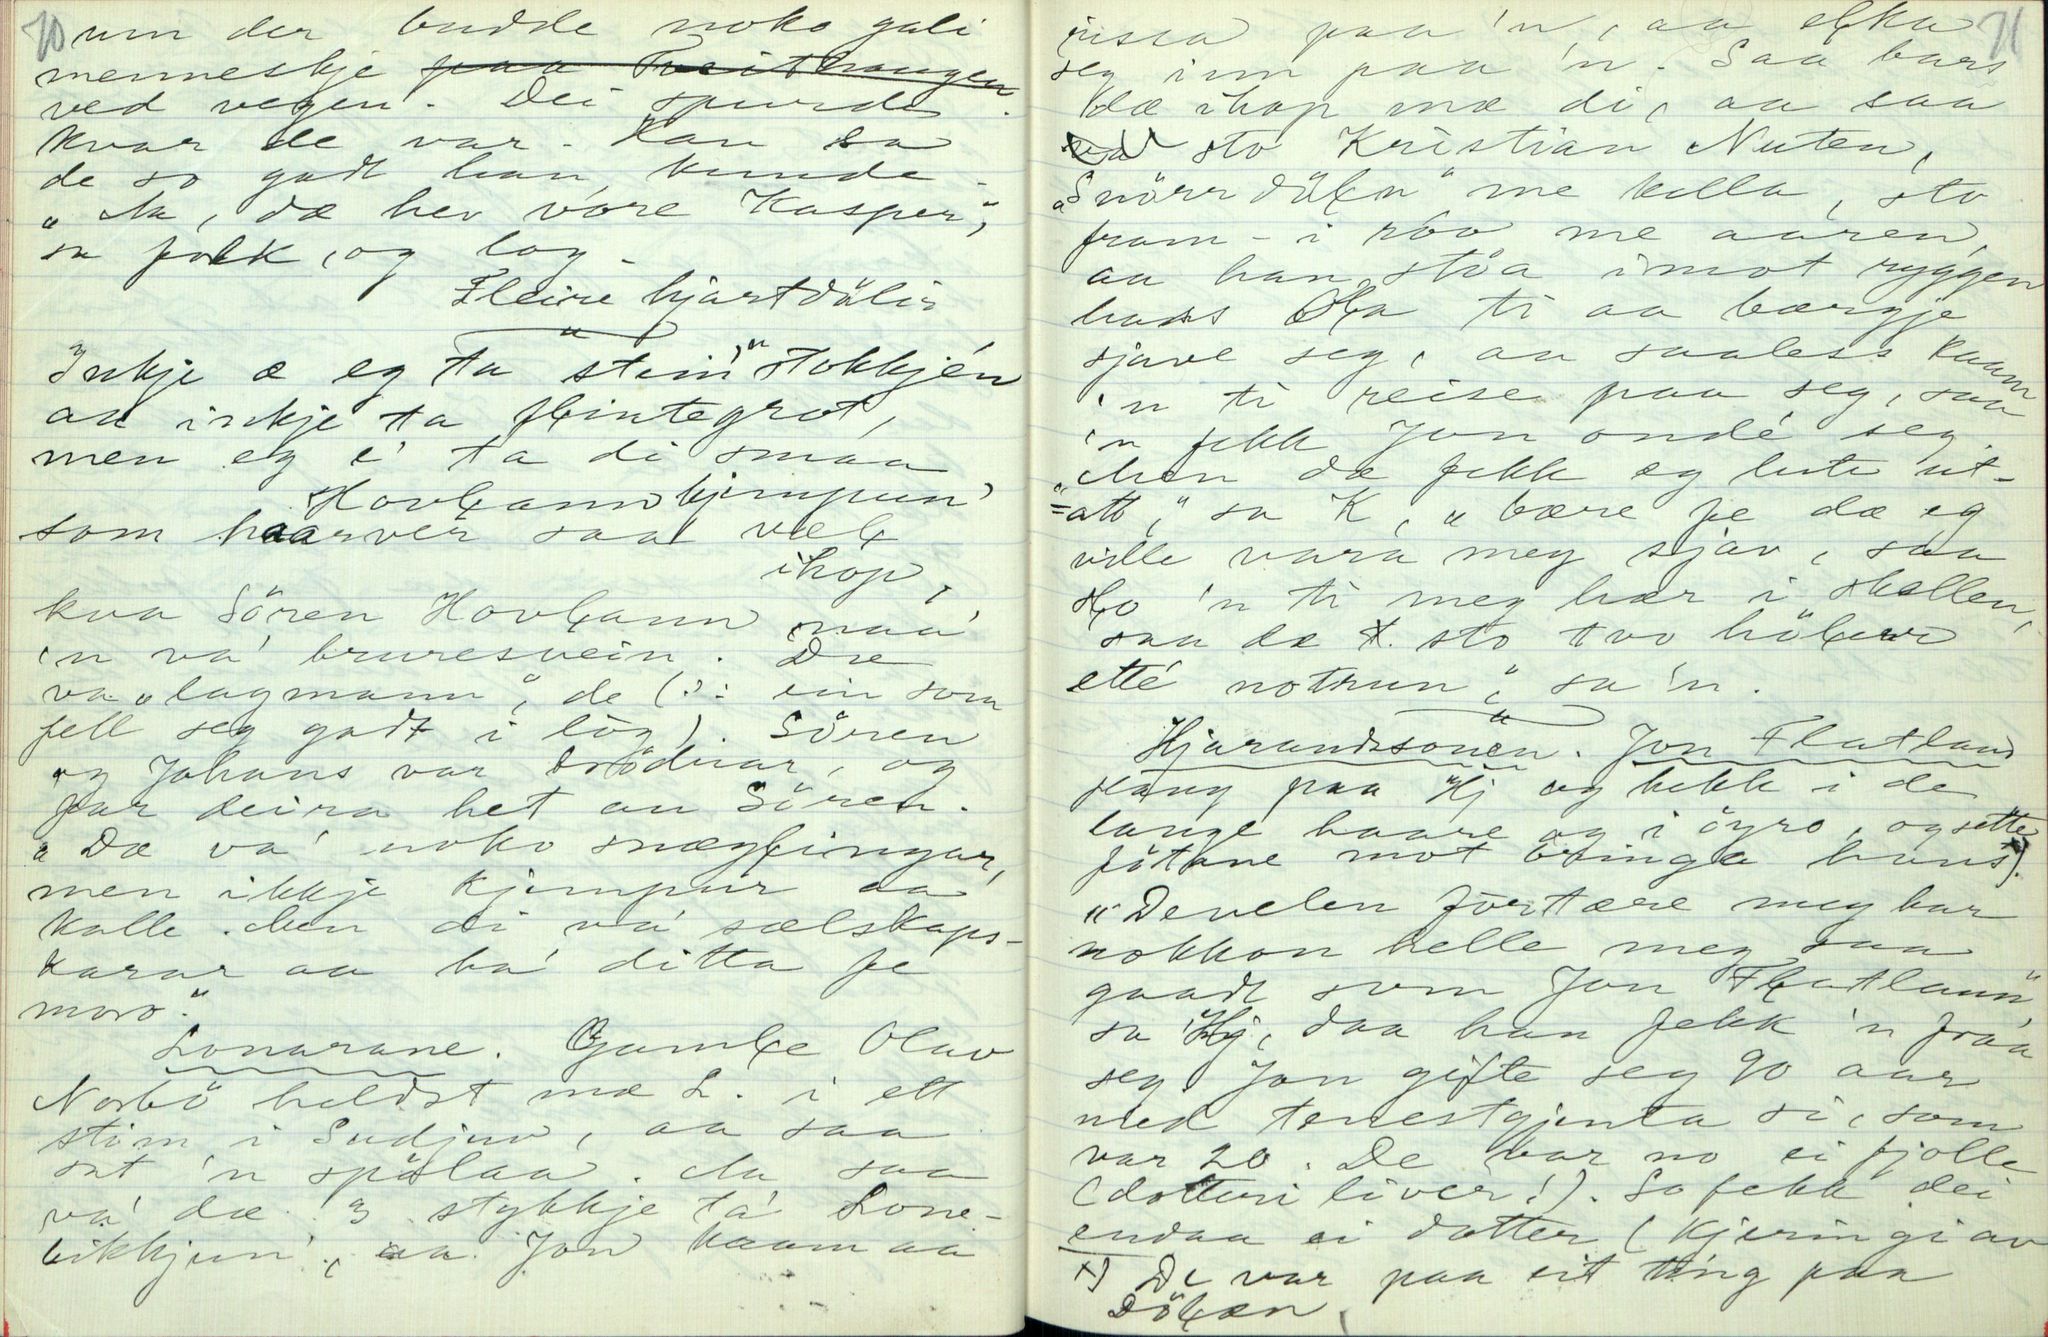 70
um der budde noko gali
menneskje paa Tveithaugen
ved vegen. Dei spurde
kvar de var. Han sa
de so godt han kunde.
„Aa, dæ hev vore Kasper“,
sa folk, og log.
Fleire hjartdölir
Inkje æ eg ta stein“stokkjén
aa inkje ta flintegrot,
men eg é ta di smaa
Hovlannkjempun'
som haarver saa vel
ihop,
kva Sören Hovlann maa
'n va' bruresvein. Dæ
va „lagmann“, de (: ein som
fell seg godt i lög). Sören
og Johans var brödrar, og
far deira het au Sören.
„Dæ va' noko snæglingar,
men ikkje kjempur aa
kalle. Men di va' sælskaps-
karar aa ha' ditta fe
moro.“
Lonarane. Gamle Olav
Norbö heldst mæ L. i ett
stim i Sudjuv, aa saa
sat 'n spölaa. Aa saa
va' dæ 3 stykkje ta' Lone-
bikkjun', aa Jon kaam aa
71
paa 'n, aa elka
seg inn paa 'n. Saa bars
dæ ihop mæ di, aa saa
sto Kristian Nuten,
„Snörrdölen“ me kalla, sto
fram-i róo me aaren,
aa han stöa imot ryggen
hass Ola ti aa bærgje
sjave seg, aa saaless kaam
'n ti reise paa seg, saa
'n fekk Jon ondé seg.
„Men dæ fekk eg lute ut-
=att,“ sa K, „bære fe dæ eg
ville vara meg sjav, saa
slo 'n ti meg hær i skallen,
saa dæ sto tvo hölur
etté notrun“, sa 'n.
Hjarandssonen. Jon Flatland
flaug paa Hj og hekk i de
lange haare og i öyro, og sette
fötane mot bringa hans x).
„Develen fortære meg har
nokkon helle meg saa
gaadt som Jon Flatlann“,
sa Hj, daa han fekk 'n fraa
seg. Jon gifte seg 90 aar
med tenestgjenta si, som
var 20. De var no ei fjolle
(dotteri liver!). So fekk dei
endaa ei dotter (Kjeringi av
x) De var paa eit ting paa
Dölen,